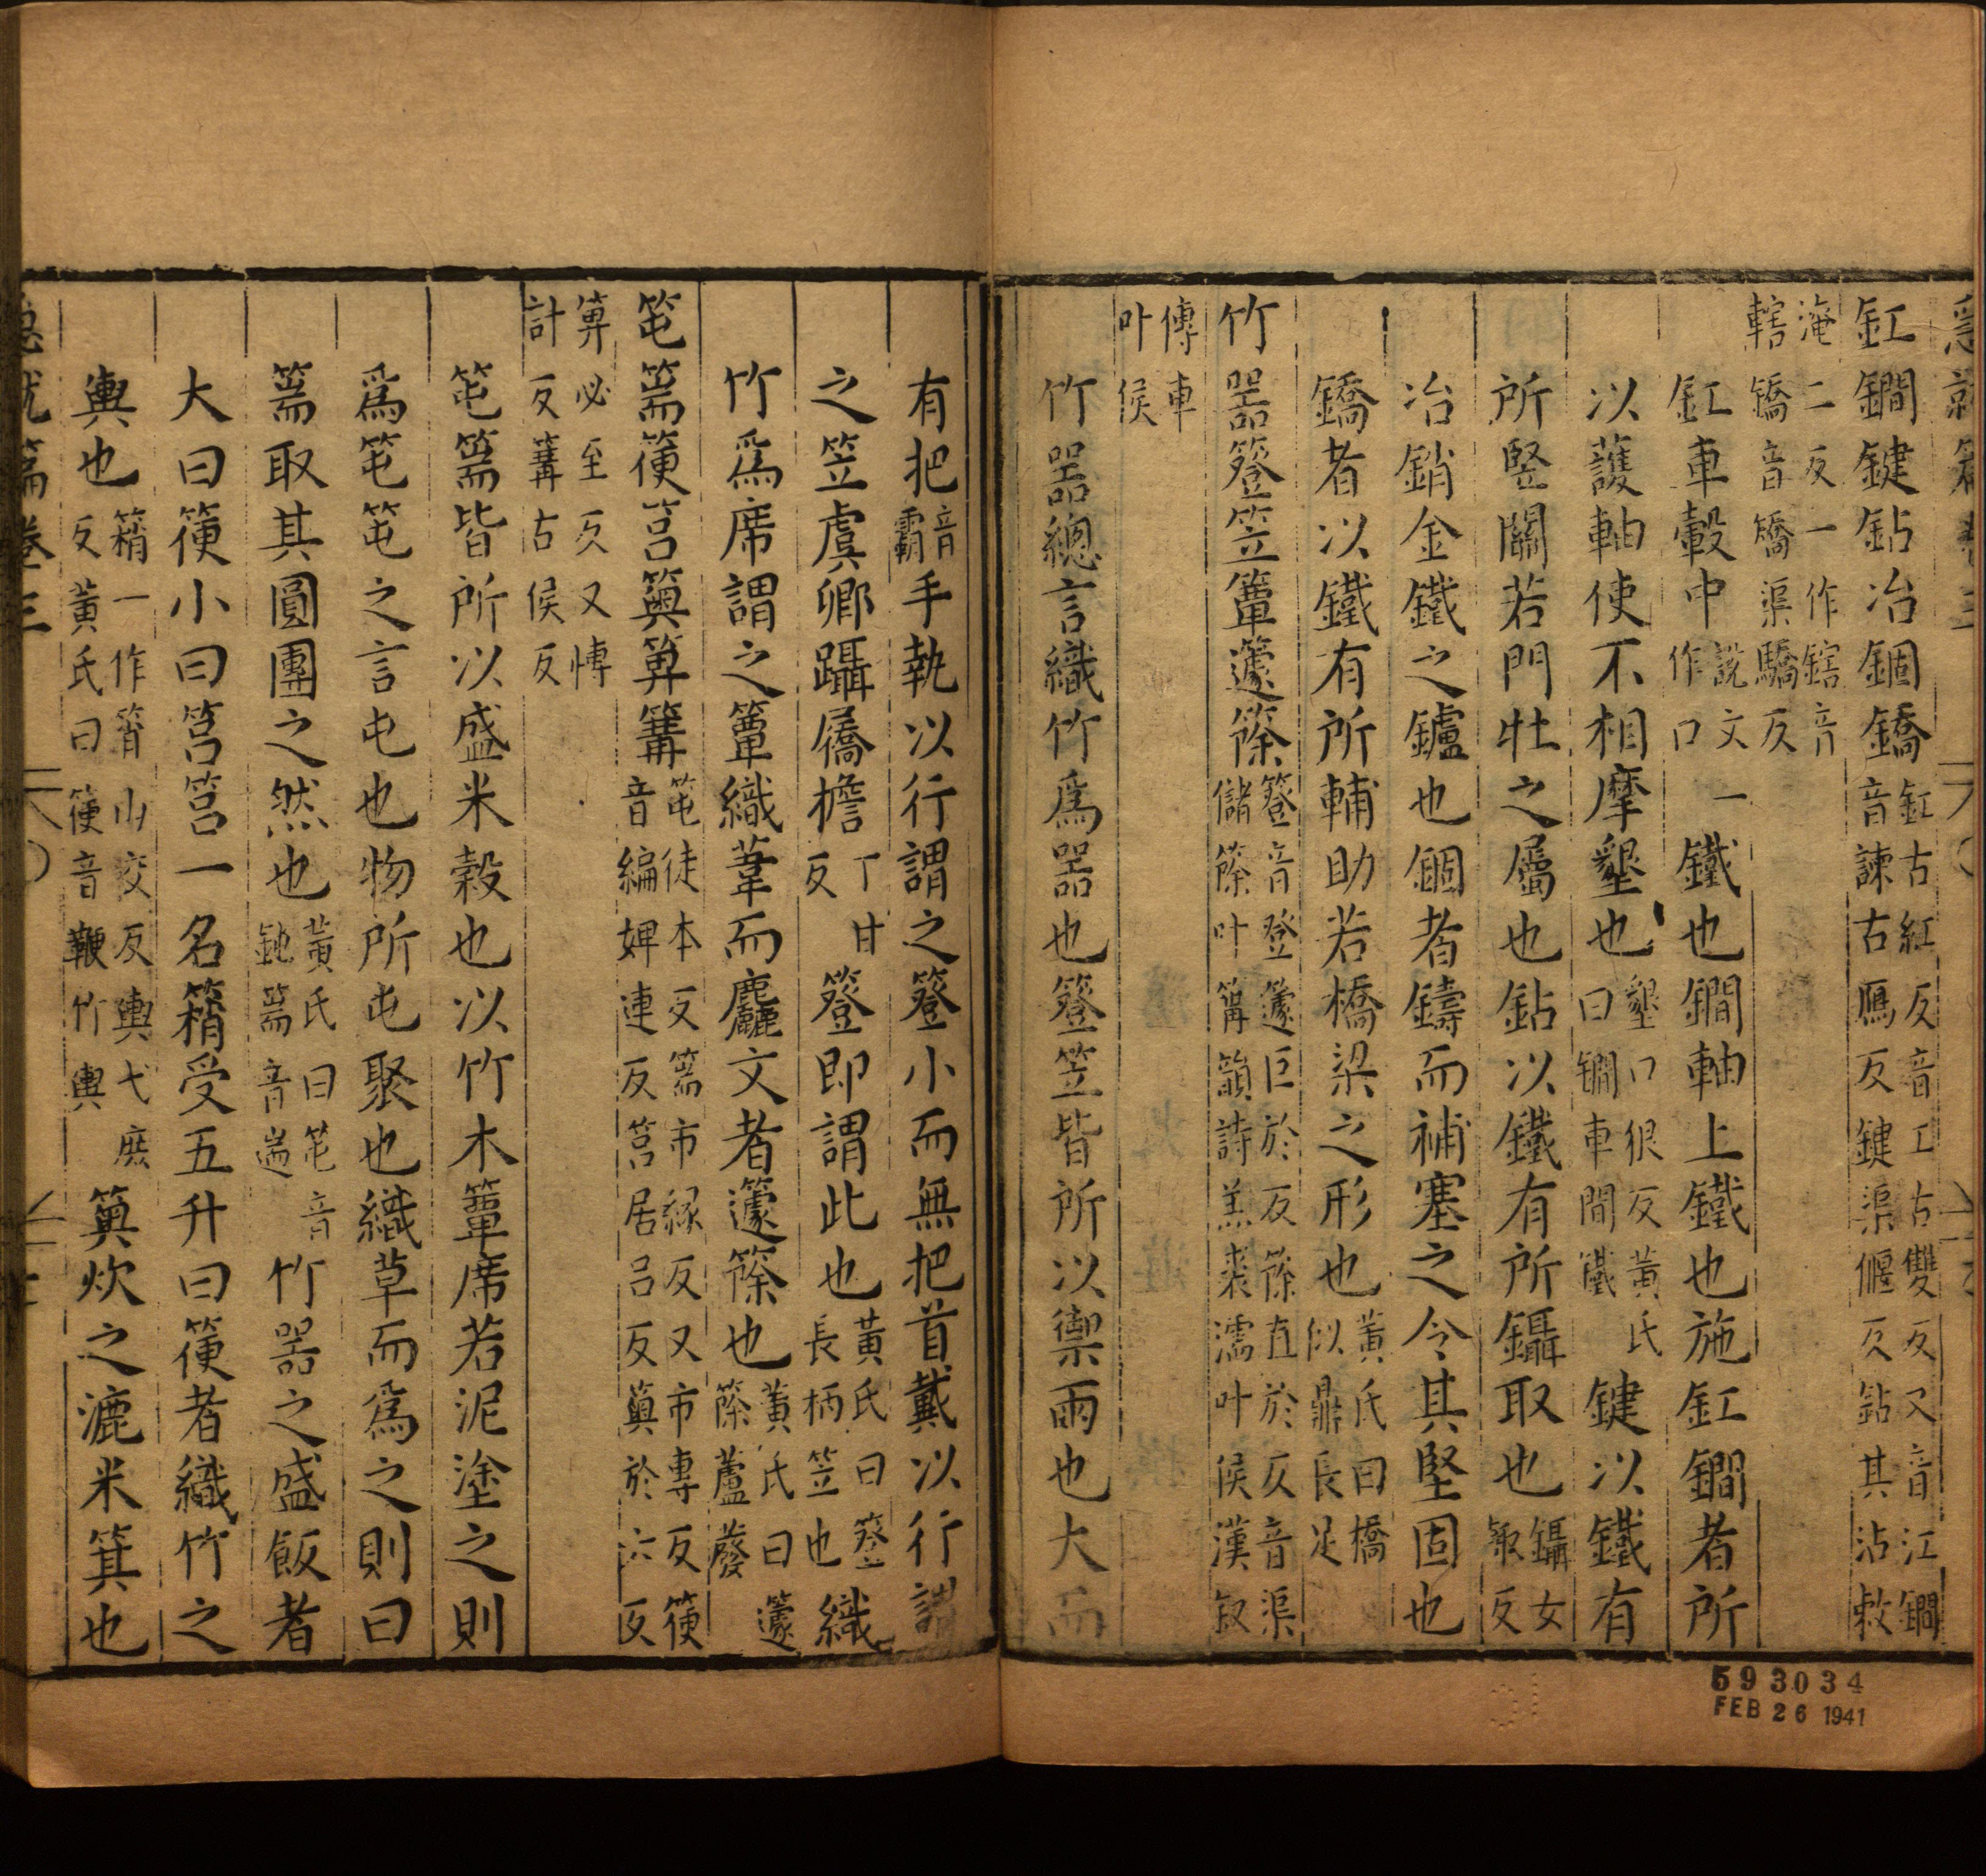 釭鐧鍵鉆冶錮鐈釭古紅反音工古雙反又音江鐧
音諫古鴈反鍵渠偃反鉆其沾敕
淹二反一作鎋音
轄鐈音矯渠驕反
釭車轂中鐵也說文作口一鐧軸上鐵也施釭鐧者所
以護軸使不相摩墾也墾口很反黃氏曰鐧車間鐵鍵以鐵有
所竪關若門牡之屬也鉆以鐵有所鑷取也鑷女輙反
冶銷金鐵之鑪也錮者鑄而補塞之令其堅固也
鐈者以鐵有所輔助若橋梁之形也黃氏曰橋似鼎長足
竹器簦笠簟籧篨簦音登籧巨於反篨直於反音渠
儲篨叶簿韻詩羔裘濡叶侯漢叙
傳車
叶侯
竹器總言織竹爲器也簦笠皆所以禦雨也大而
有把音霸手執以行謂之簦小而無把首戴以行謂
之笠虞卿躡屩檐丁甘反簦即謂此也黃氏曰簦長柄笠也織
竹爲席謂之簟織葦而麤文者籧篨也黃氏曰籧篨蘆蕟
笹篅箯筥䉛箅篝笹徒本反篅市緣反又市專反箯
音編婢連反筥居呂反䉛於六反
箅必至反又博
計反篝古侯反
笹篅皆所以盛米穀也以竹木簟席若泥塗之則
爲笹笹之言屯也物所屯聚也織草而爲之則曰
篅取其圓團之然也黃氏曰笹音鈍篅音遄竹器之盛飯者
大曰箯小曰筥筥一名䈰受五升曰箯者織竹之
輿也䈰一作筲山交反輿弋庶反黃氏曰箯音鞭竹輿䉛炊之漉米箕也
急就篇卷三
593034
FEB 26 1941